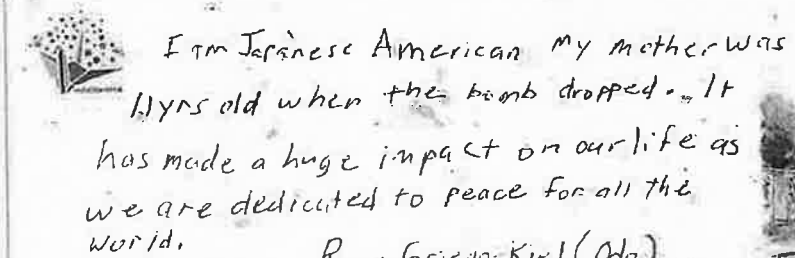 I am Japanese American my mother was
11yrs old when the bomb dropped. It
has made a huge impact on our life as
we are dedicated to peace for all the
world.